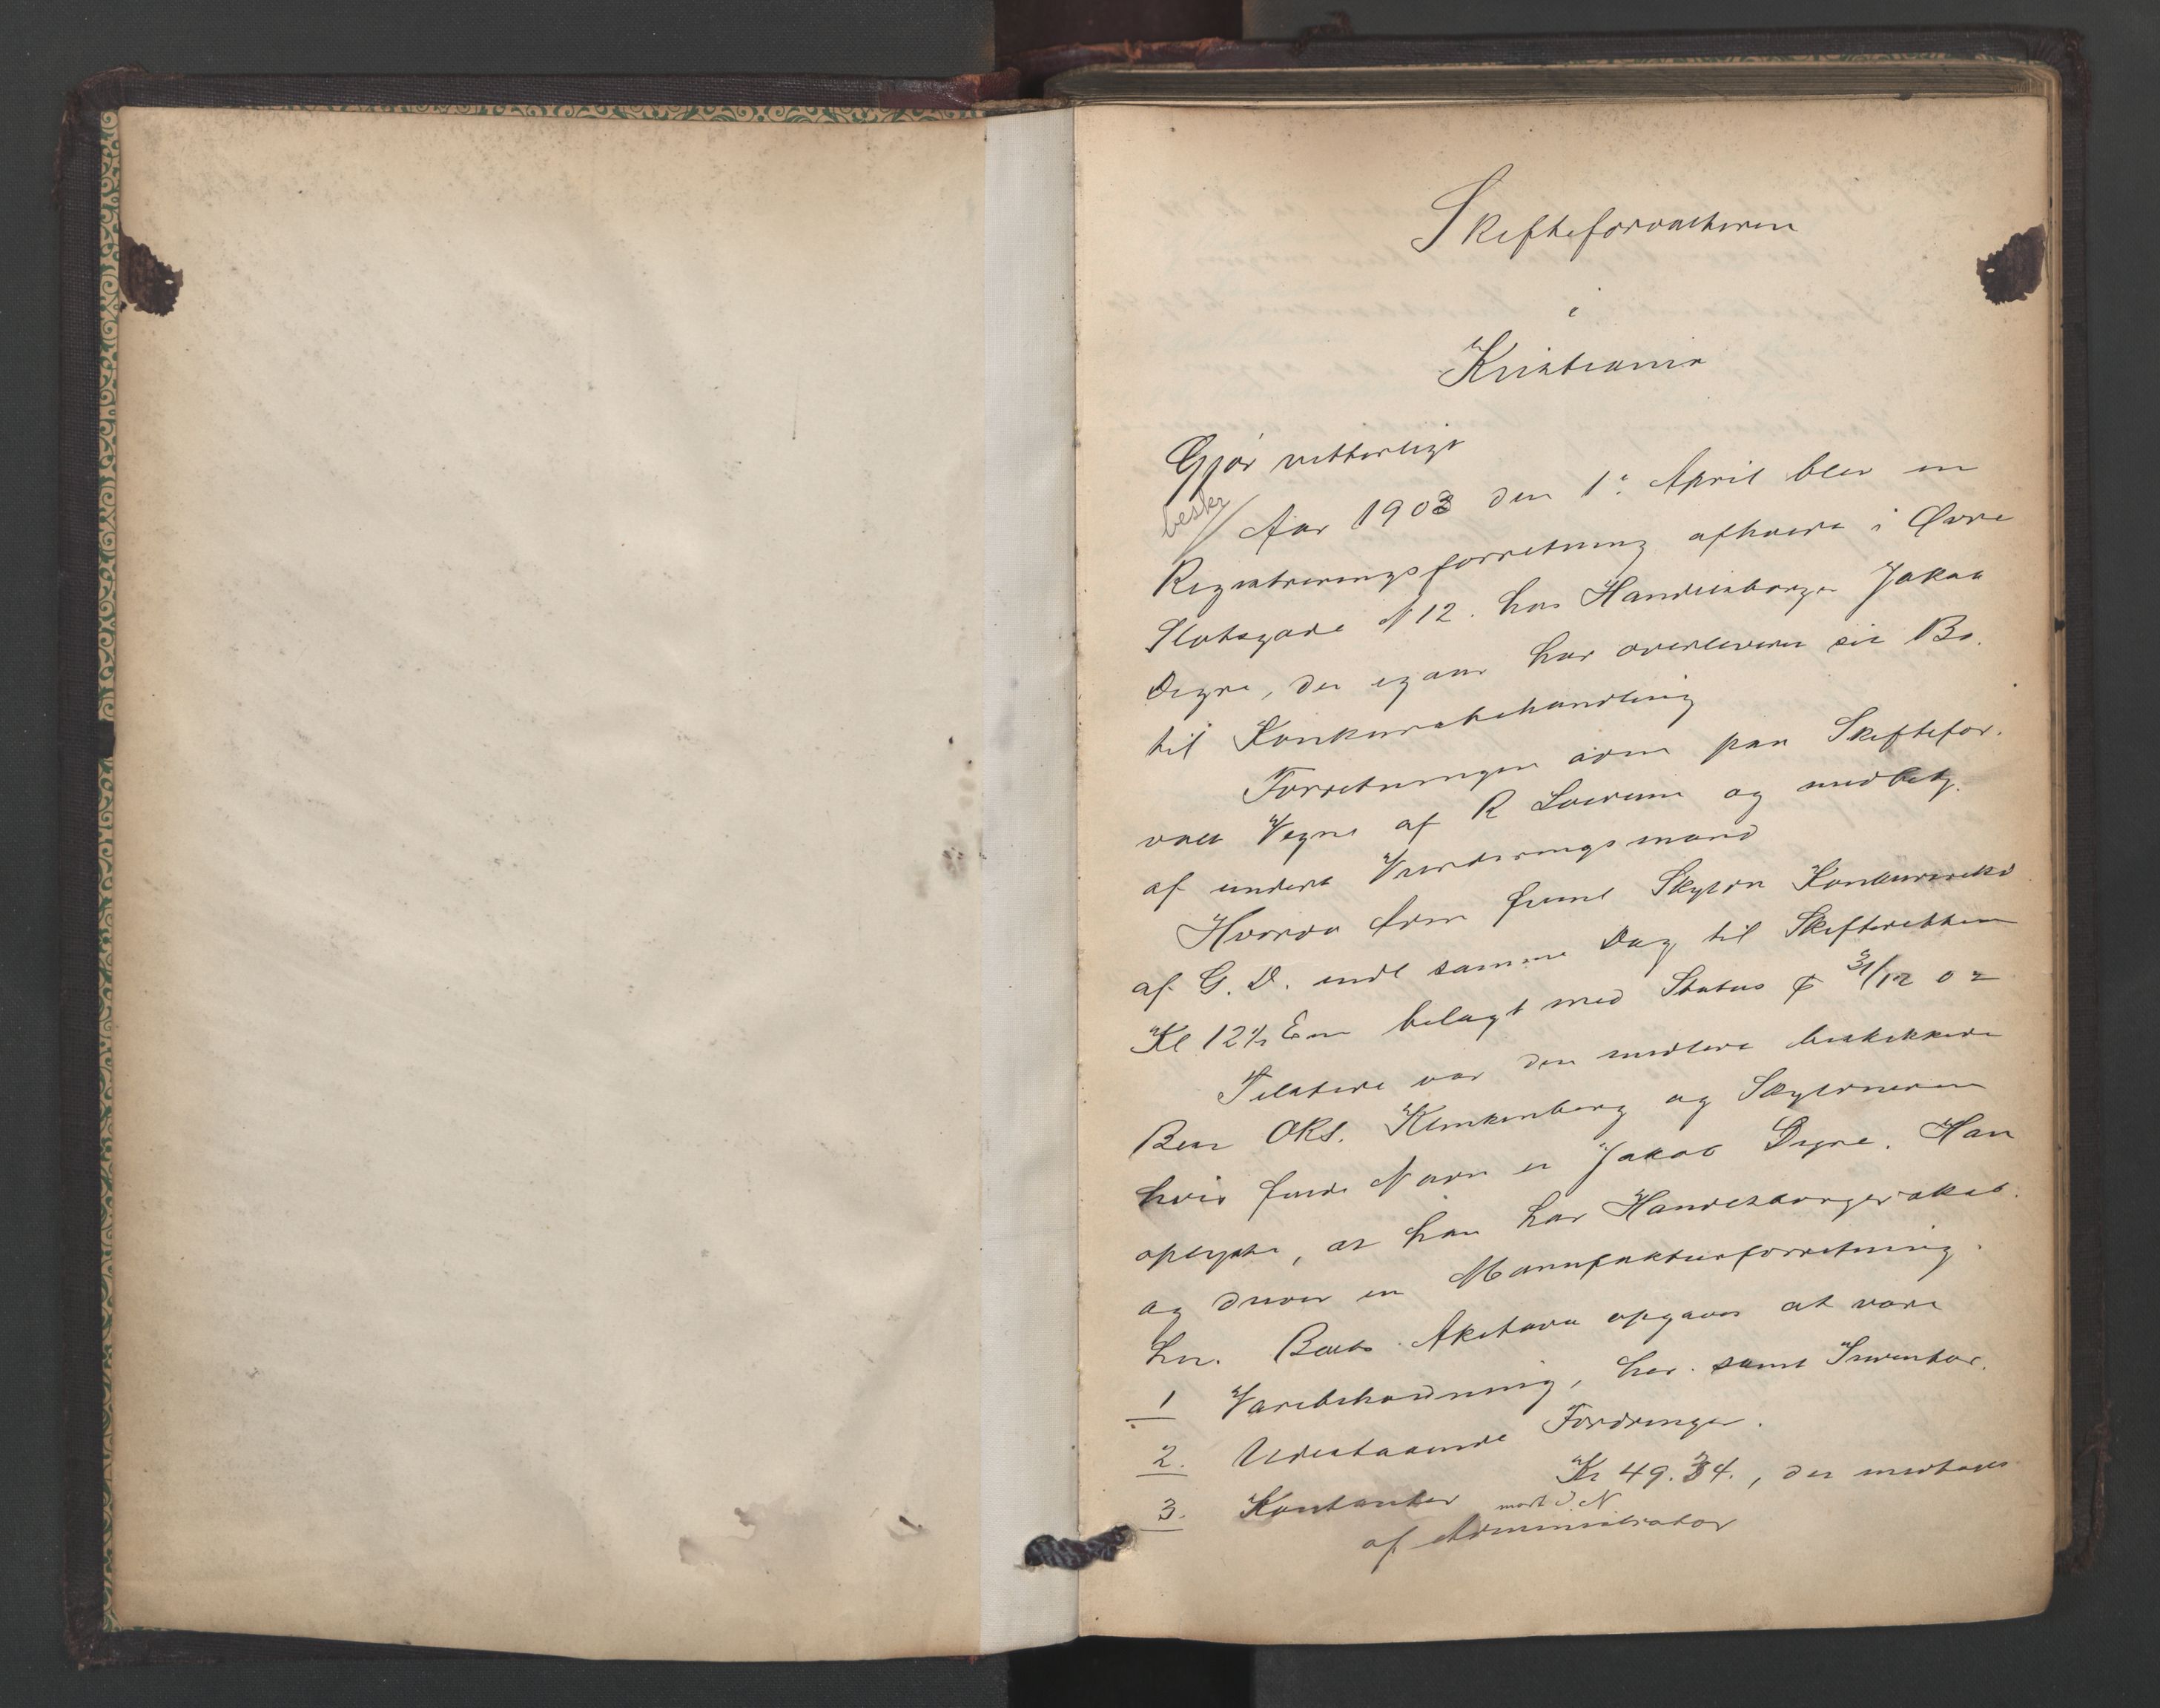 Skifteforvalteren
i
Kristiania
Gjør vitterligt
beskr
Aar 1903 den 1' April blev en
Registreringsforretning afholdt i Øvre
Slotsgade N 12. hos Handelsborger Jakob
Digre, der igaar har overleveret sit Bo.
til Konkursbehandling
Forretningen adm paa Skiftefor.
valt Vegne af R og medbetj.
af undert Vurderingsmand
Hvorda frem Skyldn
af G. D. indl samme Dag til Skifteretten
Kl 12½ Em belagt med Status 31/12 02
Tilstede var den midlert beskikkede
Best ORS. Klinkenberg og Skyldneren
hvis fulde Navn er Jakob Digre. Han
oplyste, at han har Handelsborgerskab.
og driver en Manufakturforretning.
her. Boets Aktiva opgaves at være
1 Varebeholdning, her. samt Inventar.
2. Udestaaende Fordringer.
3. Kontanter Kr 49.34., der modtages
modt d. N.
af Administrator